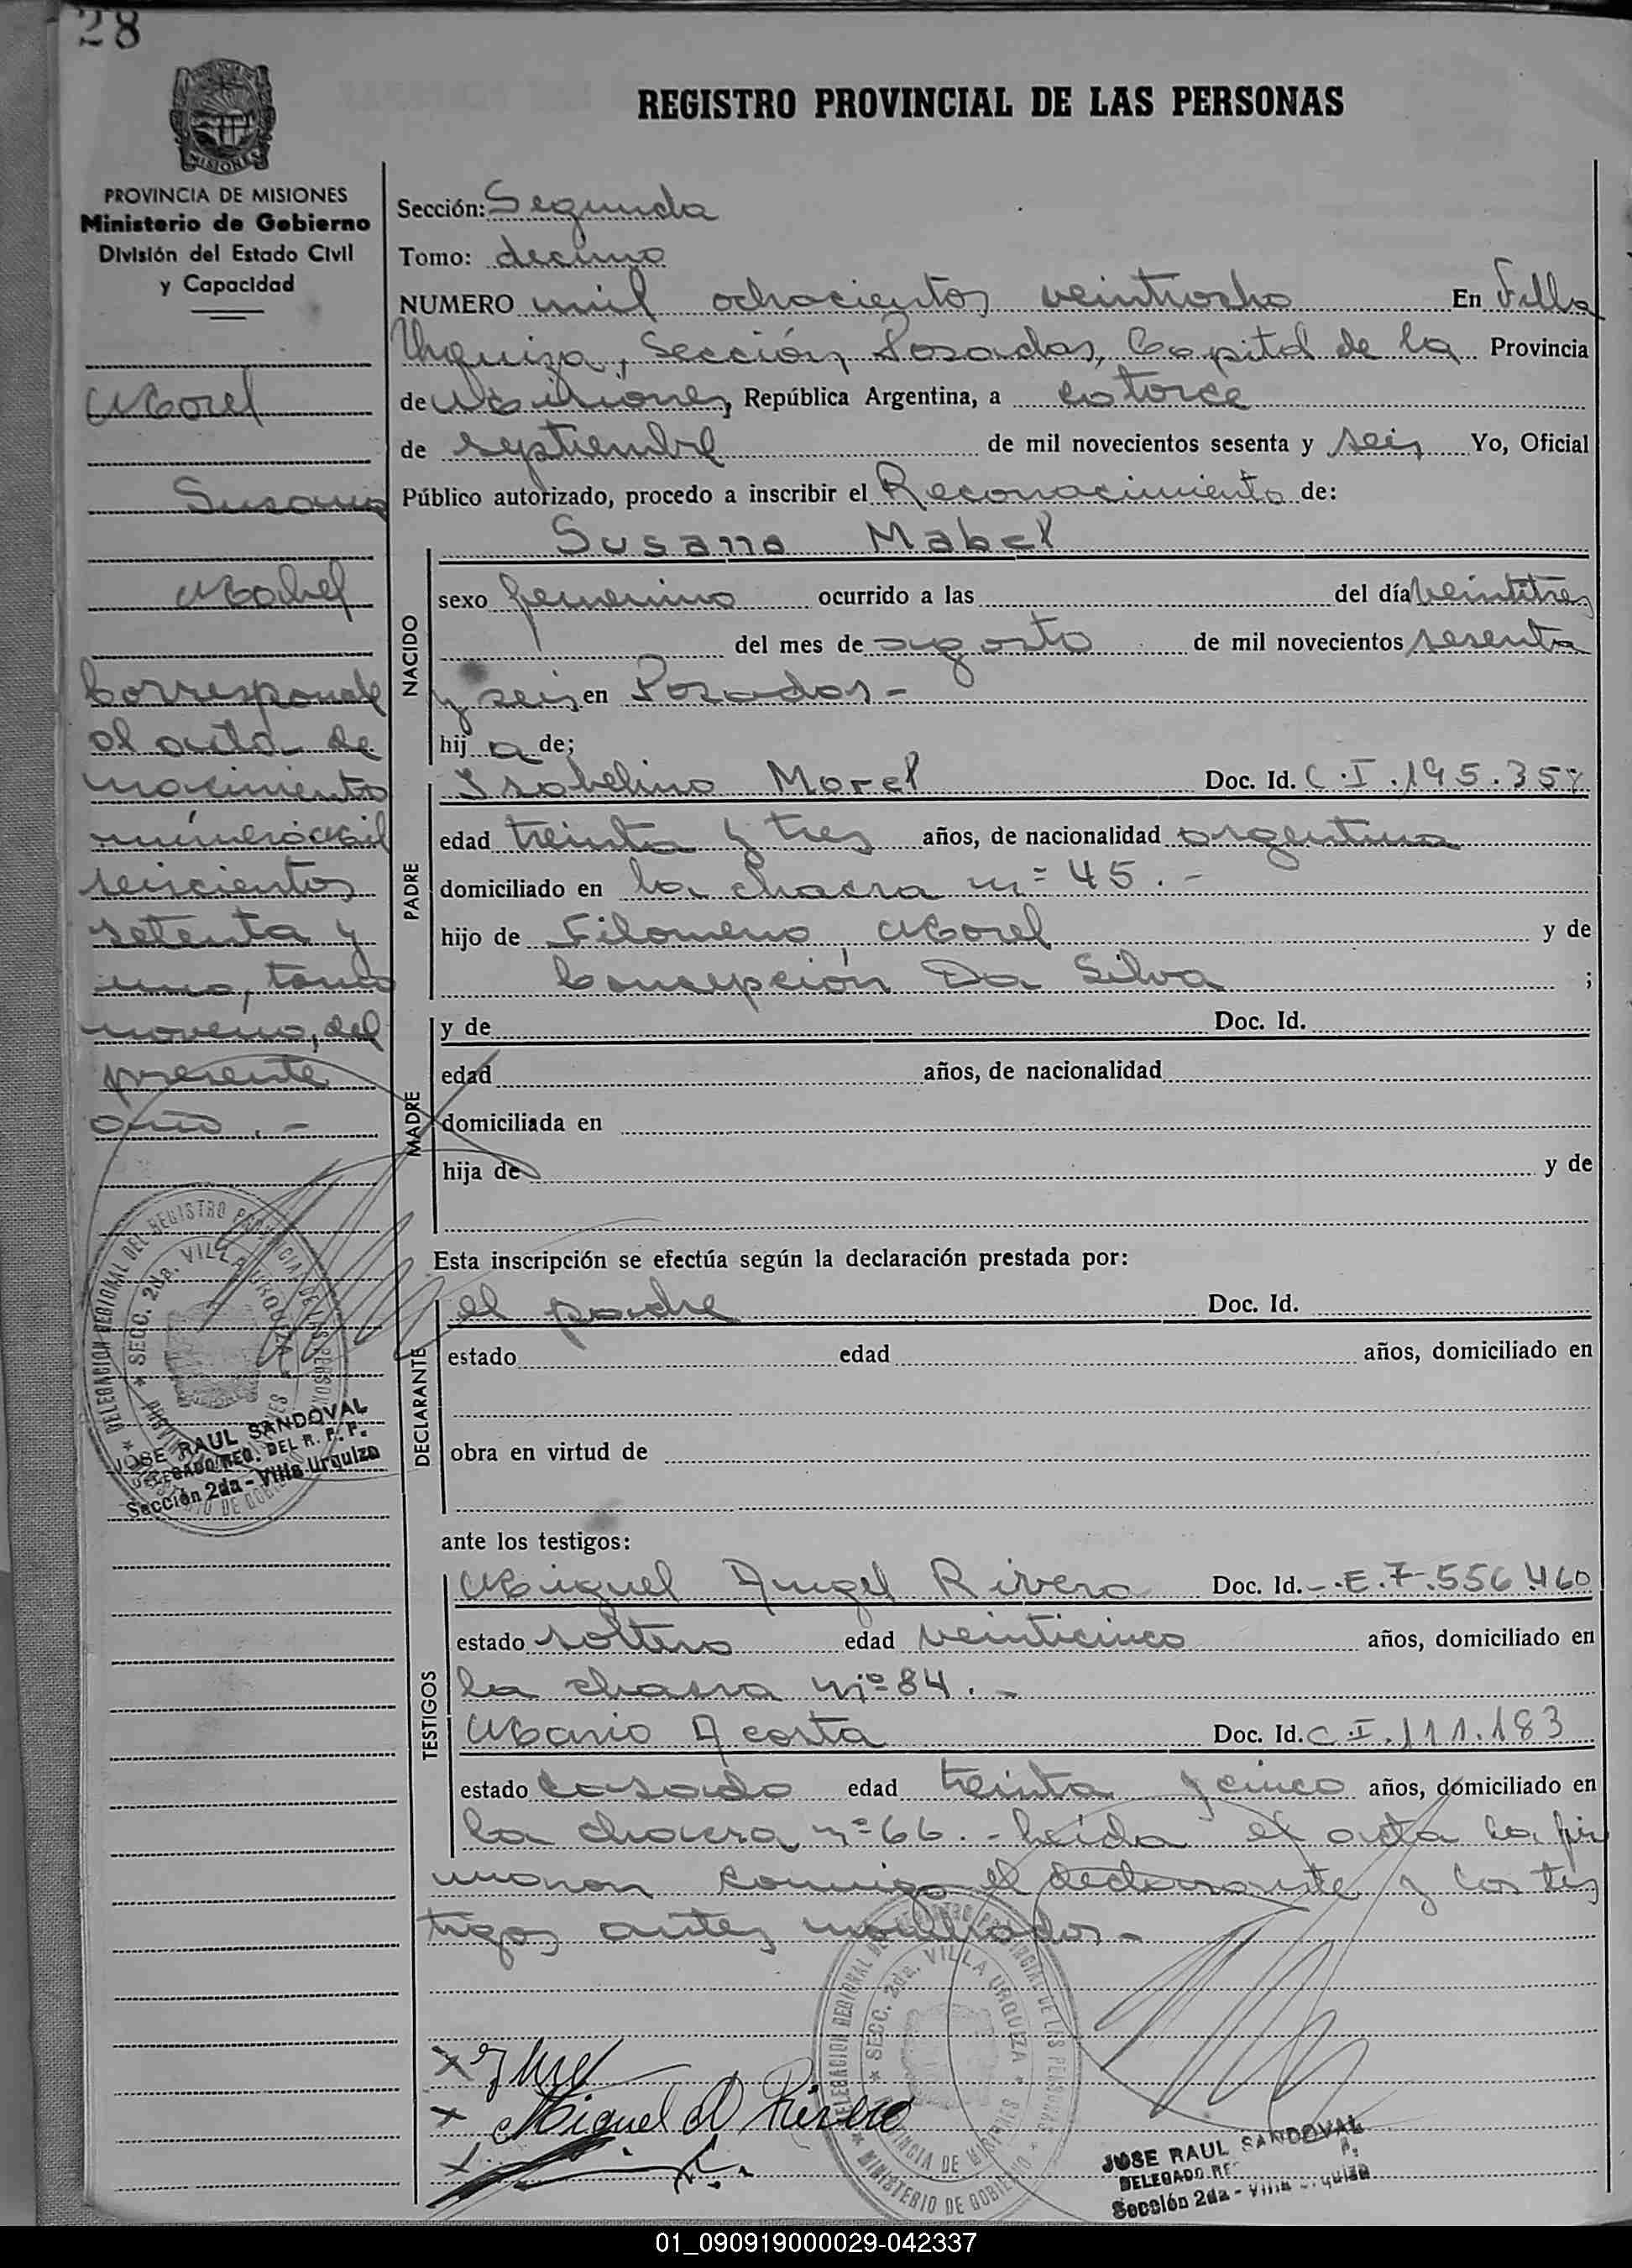 28
REGISTRO PROVINCIAL DE LAS PERSONAS
MISIONES
PROVINCIA DE MISIONES
Ministerio de Gobierno
División del Estado Civil
y Capacidad
Morel
Susana
Mabel
Corresponde
al acta de
nacimiento
número mil
seiscientos
setenta y
uno, tomo
noveno, del
presente
año.-
DELEGACION REGIONAL DEL REGISTRO PROVINCIAL DE LAS PERSONAS
SECC. 2da. VILLA URQUIZA
JOSE RAUL SANDOVAL
DELEGADO REG. DEL R. P. P.
Sección 2da - Villa Urquiza
Sección: Segunda
Tomo: decimo
NUMERO mil ochocientos veintiocho En Villa
Urquiza, Sección Posadas, Capital de la Provincia
de Misiones, República Argentina, a catorce
de septiembre de mil novecientos sesenta y seis Yo, Oficial
Público autorizado, procedo a inscribir el Reconocimiento de:
NACIDO
Susana Mabel
sexo femenino ocurrido a las del día veintitres
del mes de agosto de mil novecientos sesenta
y seis en Posadas.-
hij a de;
PADRE
Isabelino Morel Doc. Id. C.I.195.357
edad treinta y tres años, de nacionalidad argentina
domiciliado en la chacra nº 45.-
hijo de Filomeno Morel y de
Concepción Da Silva ;
MADRE
y de Doc. Id.
edad años, de nacionalidad
domiciliada en
hija de y de
Esta inscripción se efectúa según la declaración prestada por:
DECLARANTE
el padre Doc. Id.
estado edad años, domiciliado en
obra en virtud de
ante los testigos:
TESTIGOS
Miguel Angel Rivero Doc. Id. -.E.7.556.460
estado soltero edad veinticinco años, domiciliado en
la chacra nº 84.-
Mario Acosta Doc. Id. C.I.111.183
estado casado edad treinta y cinco años, domiciliado en
la chacra nº 66.- Leída el acta la fir
maron conmigo el declarante y los tes
tigos antes nombrados-
DELEGACION REGIONAL DEL REGISTRO PROVINCIAL DE LAS PERSONAS
SECC. 2da. VILLA URQUIZA
PROVINCIA DE MISIONES
MINISTERIO DE GOBIERNO
Miguel A Rivero
JOSE RAUL SANDOVAL
DELEGADO
Sección 2da - Villa Urquiza
01_090919000029-042337